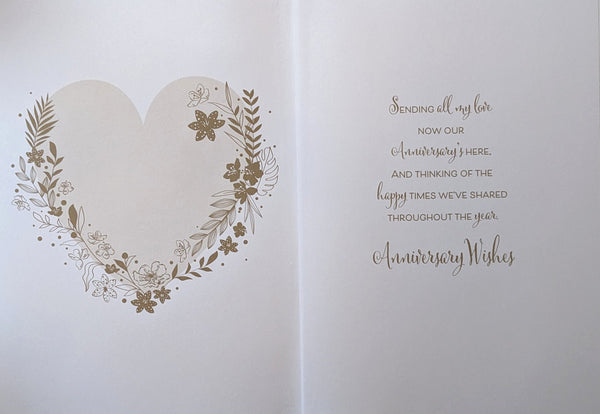 Sending all my love
now our
Anniversary's here.
And thinking of the
happy times we've shared
throughout the year.
Anniversary Wishes